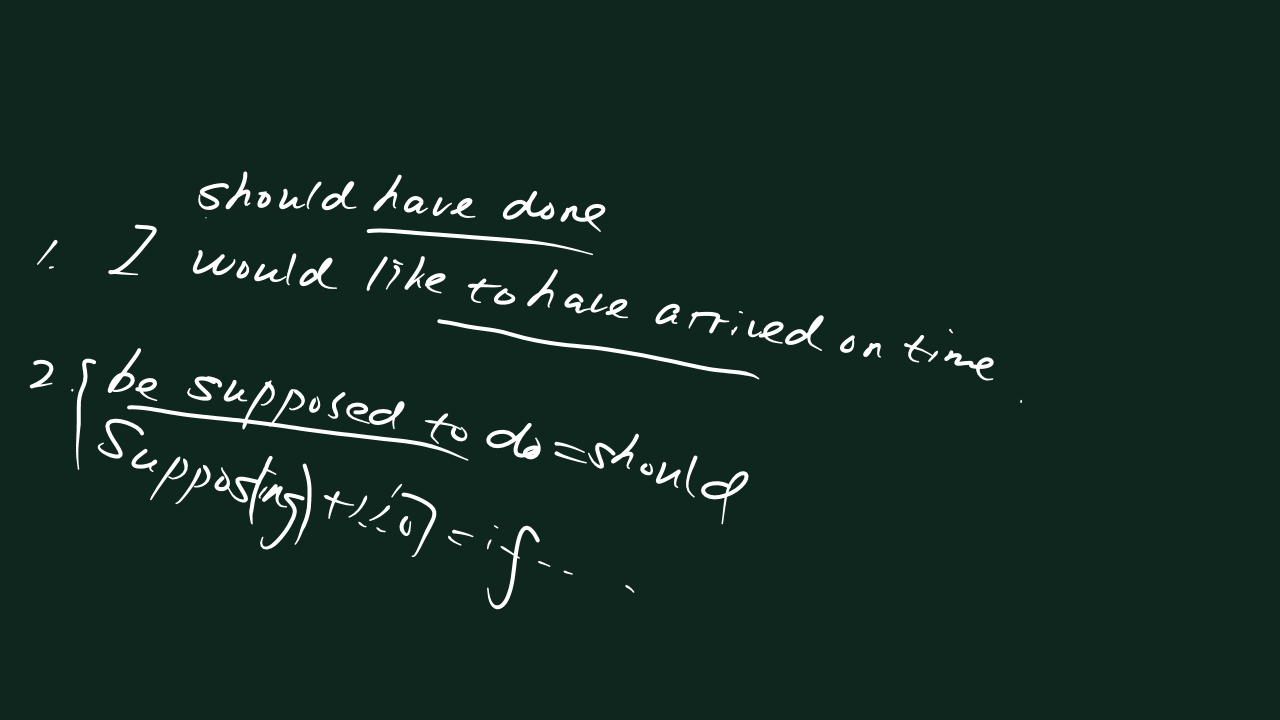 should have done
1. I would like to have arrived on time.
2. be supposed to do = should
Suppos(ing) + = if ....